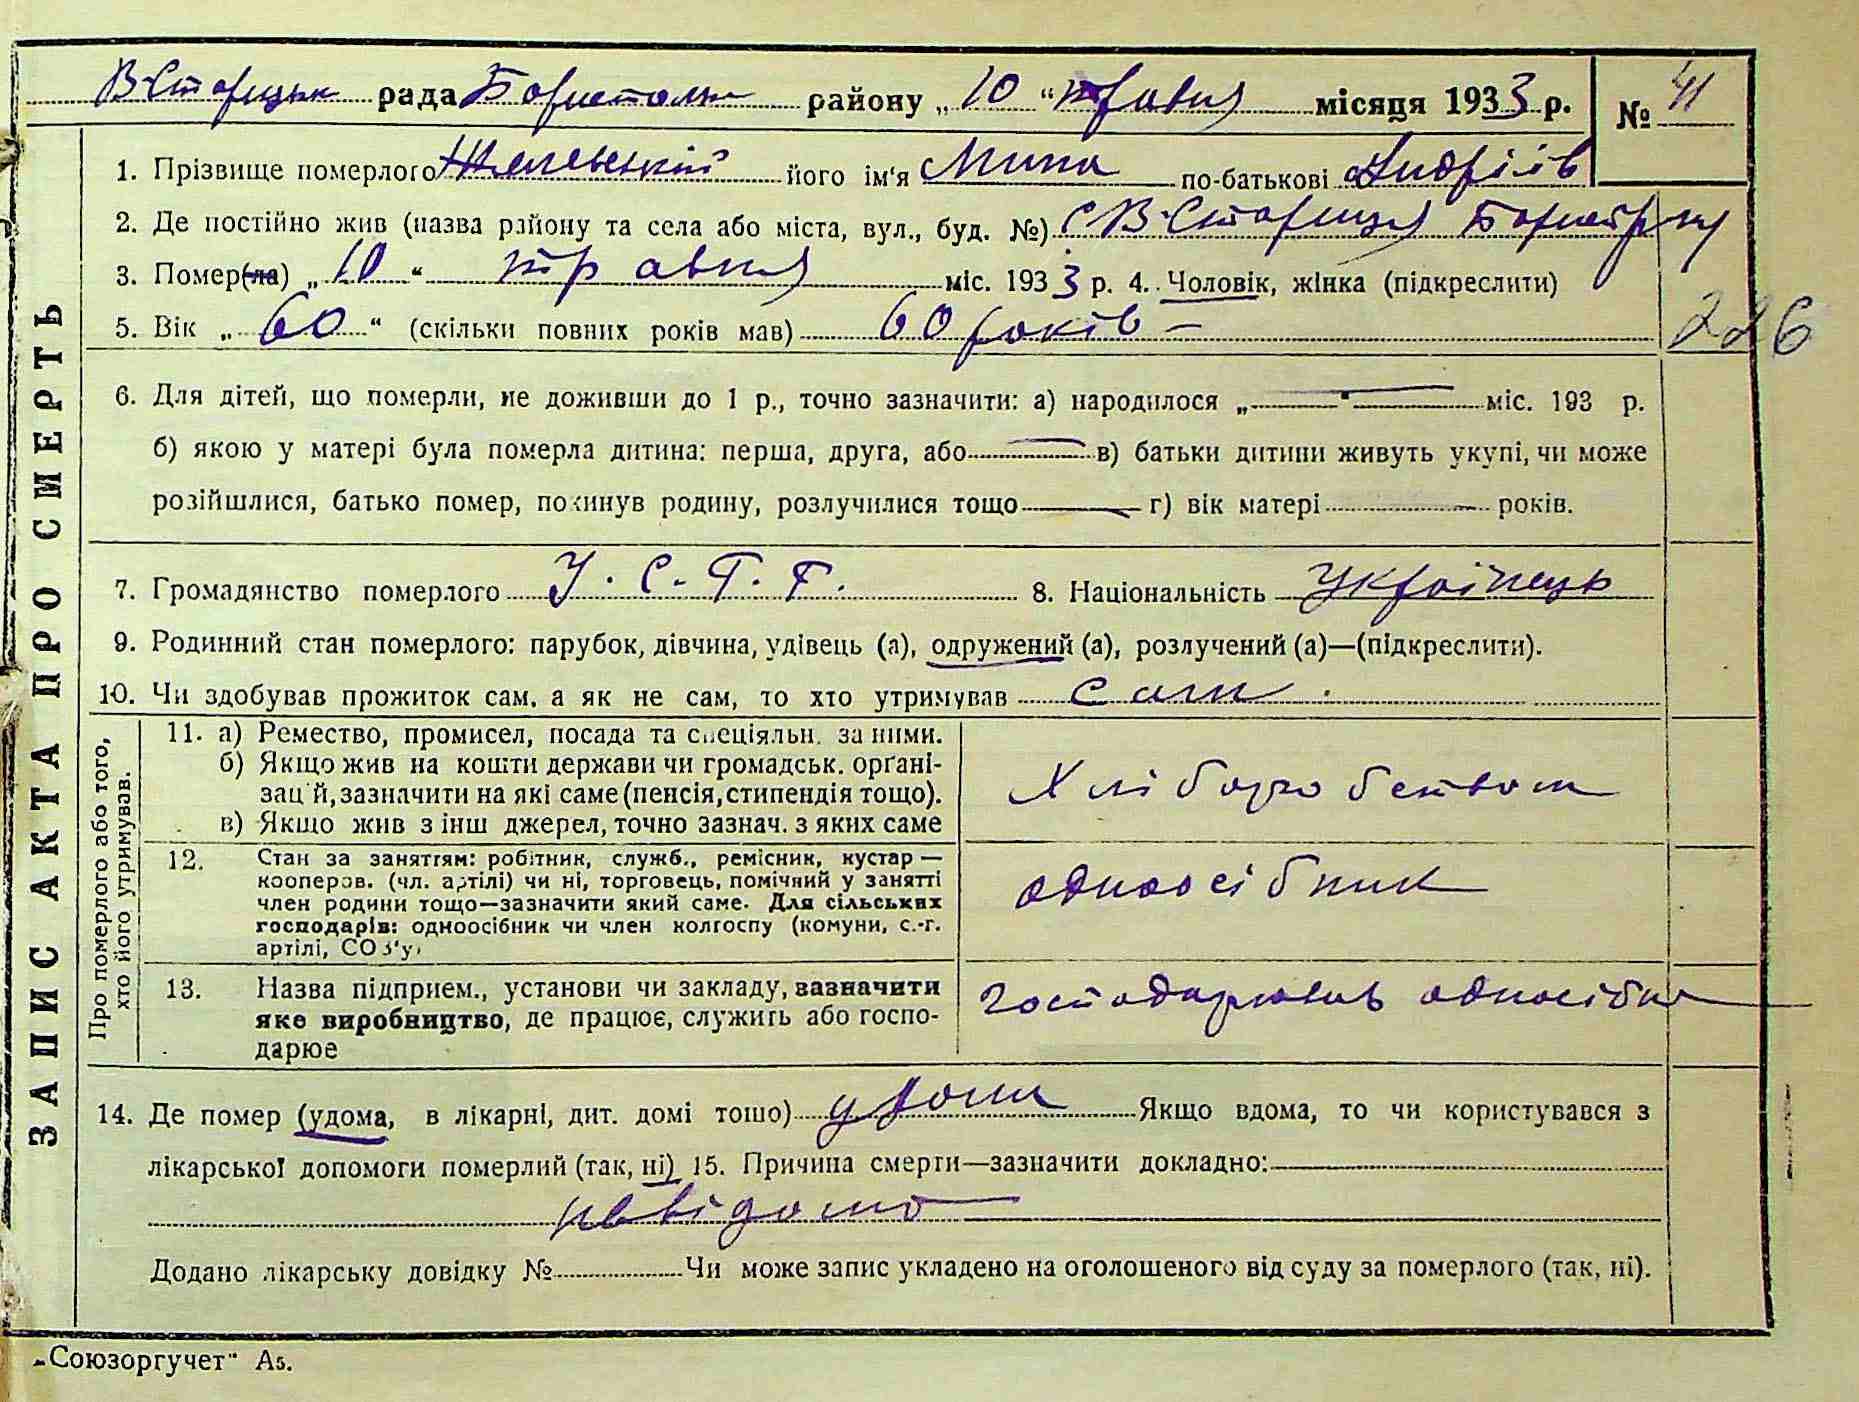 В-Старицьк рада Бориспольс району „10“ травня місяця 1933 р. № 41
1. Прізвище померлого його ім‘я Мина по-батькові Андріїв
2. Де постійно жив (назва району та села або міста, вул., буд. №) с В-Стариця
3. Помер(ла) „10“ травня міс. 1933 р. 4. Чоловік, жінка (підкреслити)
5. Вік „60“ (скільки повних років мав) 60 років —
226
6. Для дітей, що померли, не доживши до 1 р., точно зазначити: а) народилося „—“— міс. 193 р.
б) якою у матері була померла дитина: перша, друга, або — в) батьки дитини живуть укупі, чи може
розійшлися, батько помер, покинув родину, розлучилися тощо — г) вік матері — років.
7. Громадянство померлого У.С.Р.Р. 8. Національність Українець
9. Родинний стан померлого: парубок, дівчина, удівець (а), одружений (а), розлучений (а)—(підкреслити).
10. Чи здобував прожиток сам, а як не сам, то хто утримував сам.
ЗАПИС АКТА ПРО СМЕРТЬ
Про померлого або того,
хто його утримував.
11. а) Ремество, промисел, посада та спеціяльн. за ними.
б) Якщо жив на кошти держави чи громадськ. орґані-
зацій, зазначити на які саме (пенсія, стипендія тощо).
в) Якщо жив з інш джерел, точно зазнач. з яких саме
Хліборобством
12. Стан за заняттям: робітник, служб., ремісник, кустар —
кооперов. (чл. артілі) чи ні, торговець, помічний у занятті
член родини тощо—зазначити який саме. Для сільських
господарів: одноосібник чи член колгоспу (комуни, с.-г.
артілі, СОЗ'у)
одноосібник
13. Назва підприєм., установи чи закладу, зазначити
яке виробництво, де працює, служить або госпо-
дарює
господарював одноосібно
14. Де помер (удома, в лікарні, дит. домі тощо) у дома Якщо вдома, то чи користувався з
лікарської допомоги померлий (так, ні) 15. Причина смерти—зазначити докладно:
невідомо
Додано лікарську довідку № Чи може запис укладено на оголошеного від суду за померлого (так, ні).
„Союзоргучет“ А5.